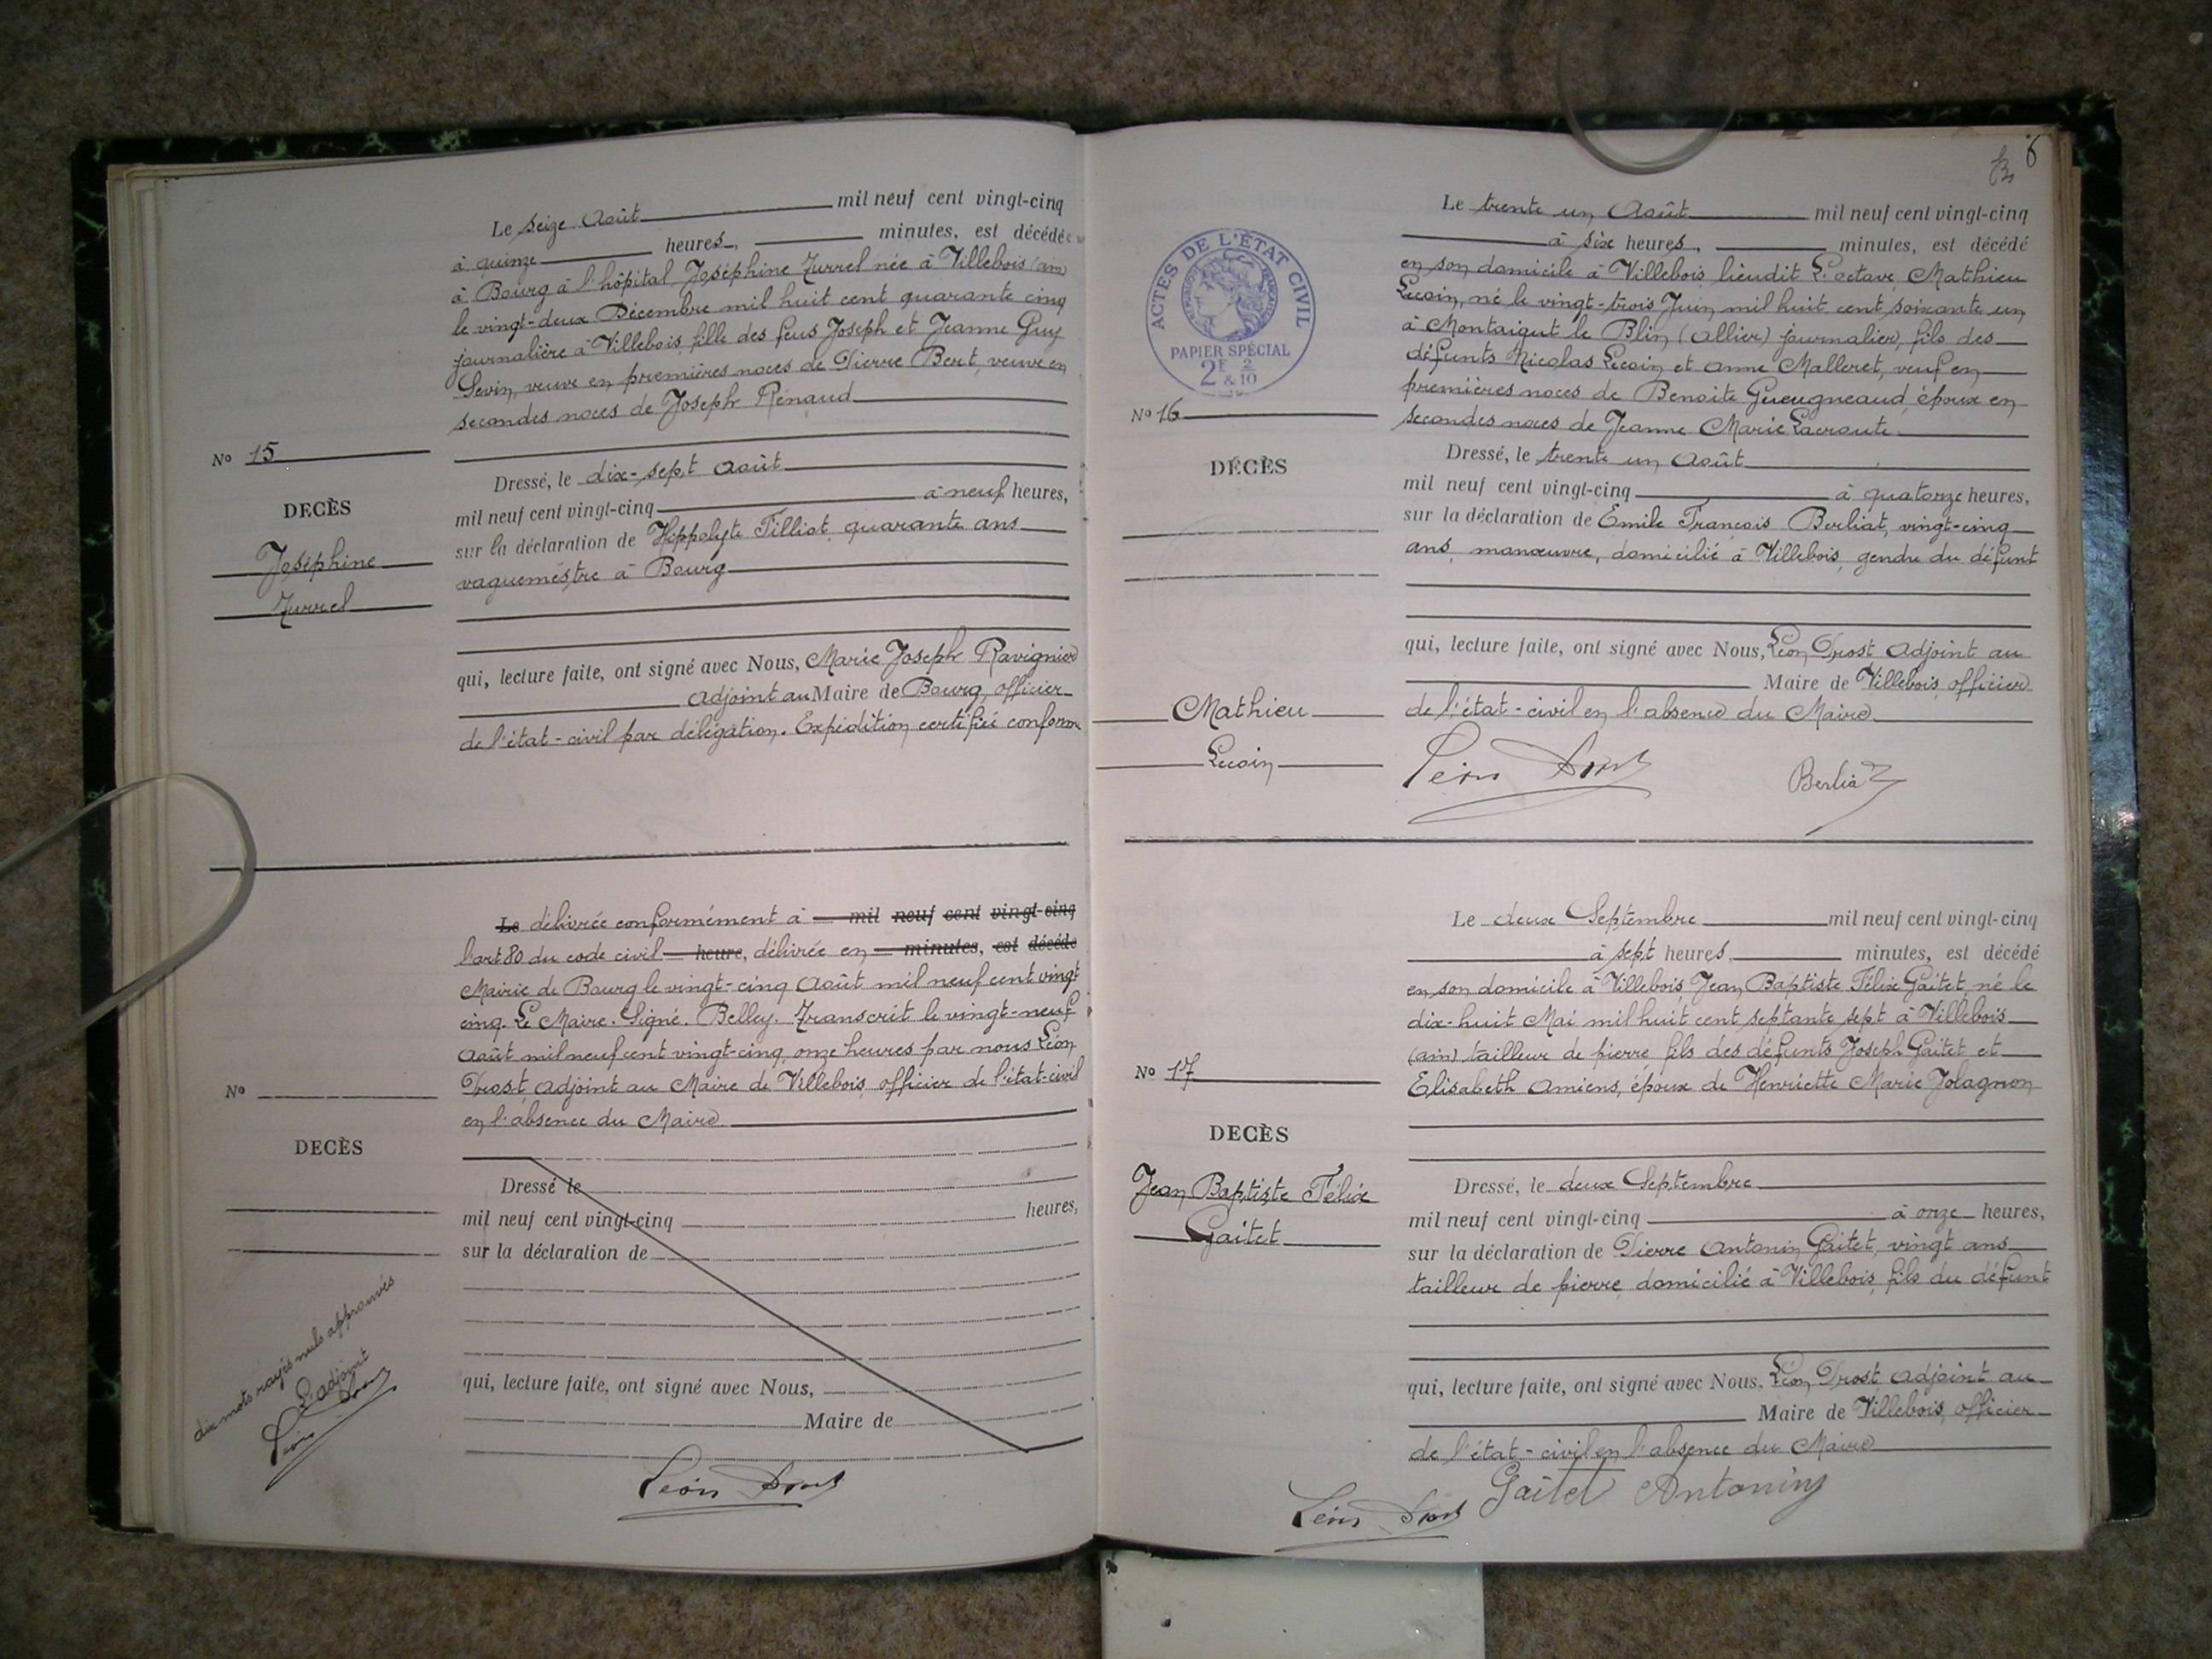 Le seize Août mil neuf cent vingt-cinq
à quinze heures, minutes, est décédée
à Bourg à l'hôpital Joséphine Turrel née à Villebois (ain)
le vingt-deux Décembre mil huit cent quarante cinq
journalière à Villebois, fille des feus Joseph et Jeanne Guy
Sevin, veuve en premières noces de Pierre Bert, veuve en
secondes noces de Joseph Rénaud
No 15
DECÈS
Joséphine
Turrel
Dressé, le dix-sept Août
mil neuf cent vingt-cinq à neuf heures,
sur la déclaration de Hippolyte Tilliot, quarante ans
vaguemestre à Bourg
qui, lecture faite, ont signé avec Nous, Marie Joseph Ravignier
Adjoint au Maire de Bourg, officier
de l'état-civil par délégation. Expédition certifiée conforme
Le délivrée conformément à mil neuf cent vingt-cinq
l'art 80 du code civil heure, délivrée en minutes, est décédé
Mairie de Bourg le vingt-cinq Août mil neuf cent vingt
cinq. Le Maire. Signé. Belley. Transcrit le vingt-neuf
Août mil neuf cent vingt-cinq, onze heures par nous Léon
Drost, adjoint au Maire de Villebois, officier de l'état-civil
en l'absence du Maire.
No
DECÈS
Dressé le
mil neuf cent vingt-cinq heures,
sur la déclaration de
qui, lecture faite, ont signé avec Nous,
Maire de
dix mots rayés nuls approuvés
L'adjoint
Léon Drost
Léon Drost
6
ACTES DE L'ÉTAT CIVIL
RÉPUBLIQUE FRANÇAISE
PAPIER SPÉCIAL
2F 2/10
&
Le trente un Août mil neuf cent vingt-cinq
à six heures, minutes, est décédé
en son domicile à Villebois, lieudit L'octave, Mathieu
Lucoin, né le vingt-trois Juin mil huit cent soixante un
à Montaigut le Blin (Allier) journalier, fils des
défunts Nicolas Lucoin et Anne Malleret, veuf en
premières noces de Benoite Gueugneaud, époux en
secondes noces de Jeanne Marie Lacroute
No 16
DÉCÈS
Mathieu
Lucoin
Dressé, le trente un Août
mil neuf cent vingt-cinq à quatorze heures,
sur la déclaration de Emile François Berliat, vingt-cinq
ans, manœuvre, domicilié à Villebois, gendre du défunt
qui, lecture faite, ont signé avec Nous, Léon Drost adjoint au
Maire de Villebois, officier
de l'état-civil en l'absence du Maire
Léon Drost Berliat
Le deux Septembre mil neuf cent vingt-cinq
à sept heures minutes, est décédé
en son domicile à Villebois, Jean Baptiste Félix Gaitet, né le
dix-huit Mai mil huit cent septante sept à Villebois
(ain) tailleur de pierre, fils des défunts Joseph Gaitet et
Elisabeth Amiens, époux de Henriette Marie Jolagnon
No 17
DECÈS
Jean Baptiste Félix
Gaitet
Dressé, le deux Septembre
mil neuf cent vingt-cinq à onze heures,
sur la déclaration de Pierre Antonin Gaitet, vingt ans
tailleur de pierre, domicilié à Villebois, fils du défunt
qui, lecture faite, ont signé avec Nous, Léon Drost adjoint au
Maire de Villebois, officier
de l'état-civil en l'absence du Maire
Léon Drost Gaitet Antonin